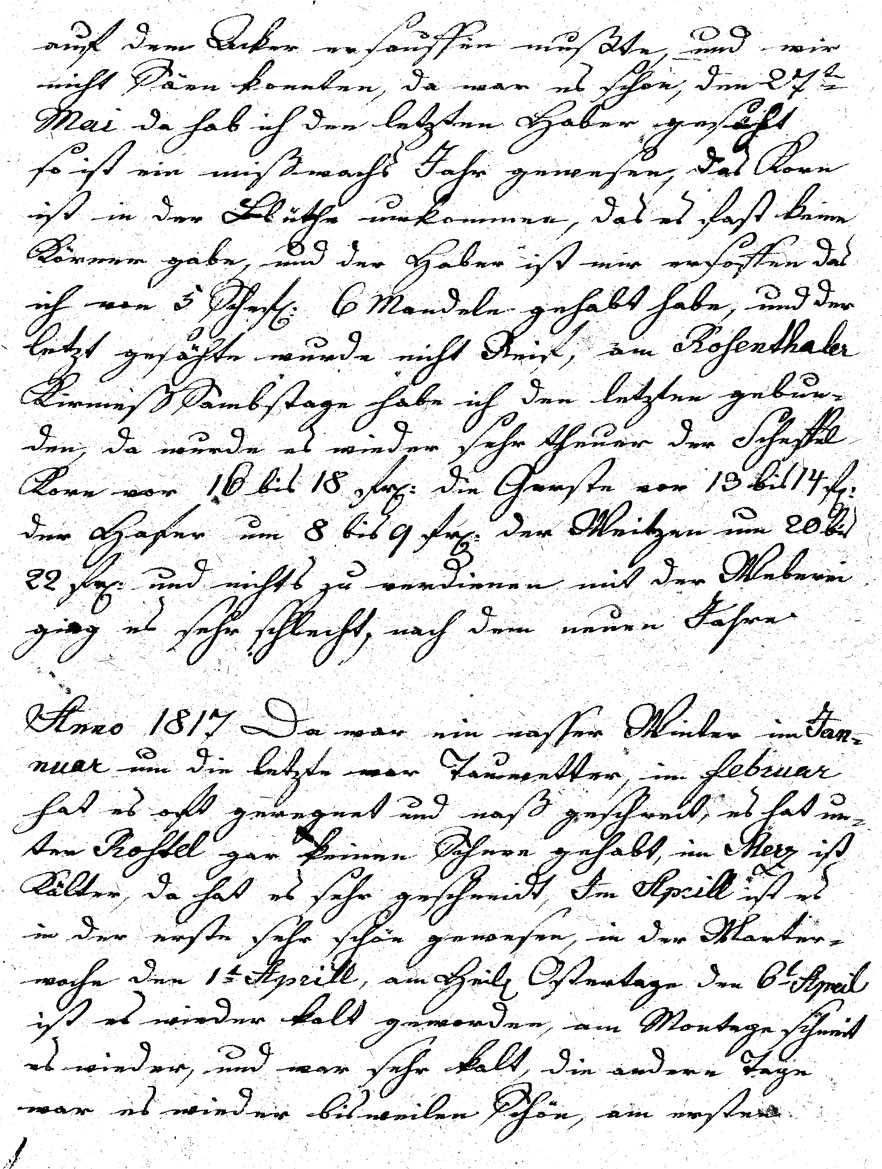 auf dem Acker ersauffen mußte, und wir
nicht Säen konnten, da war es schon, den 27t
Mai da hab ich den letzten Haber gesäht
so ist ein mißwachs Jahr gewesen, das Korn
ist in der Blüthe umkommen, das es fast keine
Körner gabe, und der Haber ist mir ersoffen das
ich von 5 Schefl: 6 Mandeln gehabt habe, und der
letzt gesähte wurde nicht Reif, am Rosenthaler
Kirmeß Sambstage habe ich den letzten gebun-
den, da wurde es wieder sehr theuer der Scheffel
Korn vor 16 bis 18 frx: die Gerste vor 13 bis 14 fx:
der Hafer um 8 bis 9 frx: der Weitzen um 20 bis
22 frx: und nichts zu verdienen mit der Weberei
ging es sehr schlecht, nach dem neuen Jahre
Anno 1817 Da war ein nasser Winter im Jan-
nuar um die letzte war Tauwetter, im februar
hat es oft geregnet und naß geschneit, es hat un-
ten Rostel gar keinen Schnee gehabt, im Merz ist
Kälter, da hat es sehr geschneidt, Im Aprill ist es
in der erste sehr schön gewesen, in der Marter-
woche den 1t Aprill, am Heilg Ostertage den 6t April
ist es wieder kalt geworden, am Montage schneit
es wieder, und war sehr kalt, die andern Tage
war es wieder bisweilen Schön, am ersten